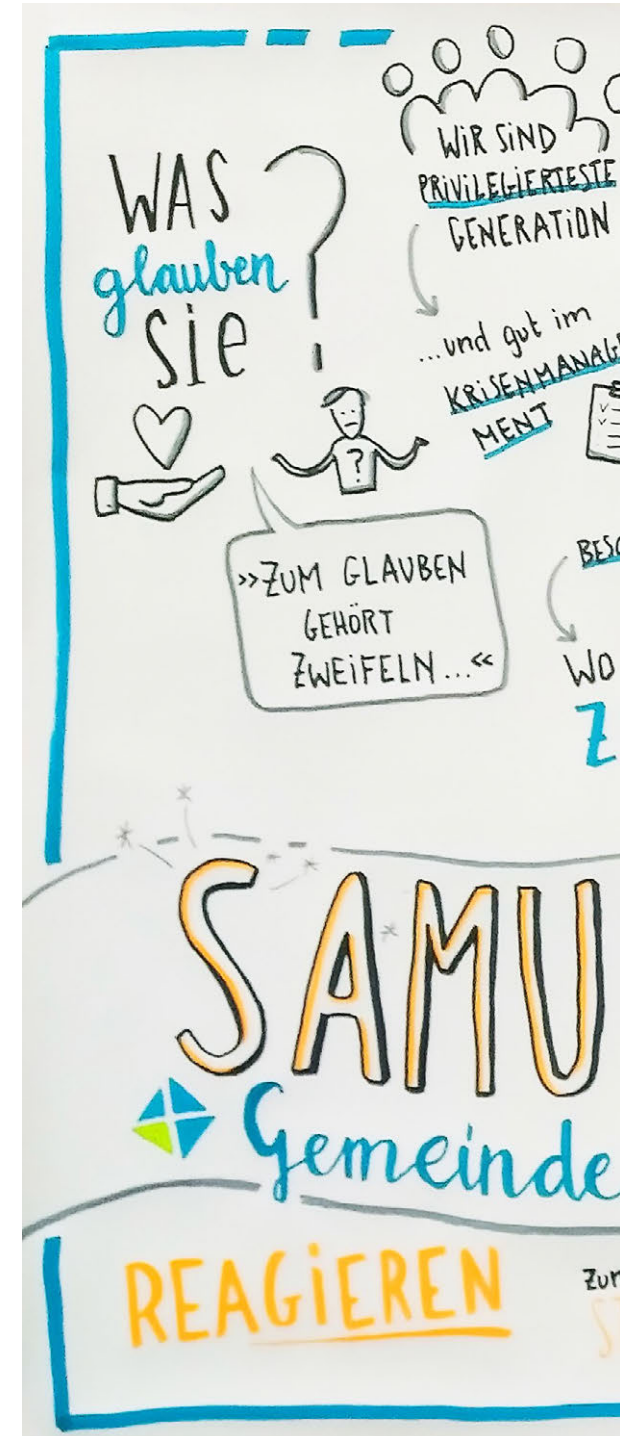 WAS
glauben
Sie ?
WIR SIND
PRIVILEGIERTESTE
GENERATION
...und gut im
KRISENMANAGE
MENT
?
»ZUM GLAUBEN
GEHÖRT
ZWEIFELN...«
WO
Z
SAMU
Gemeinde
REAGIEREN